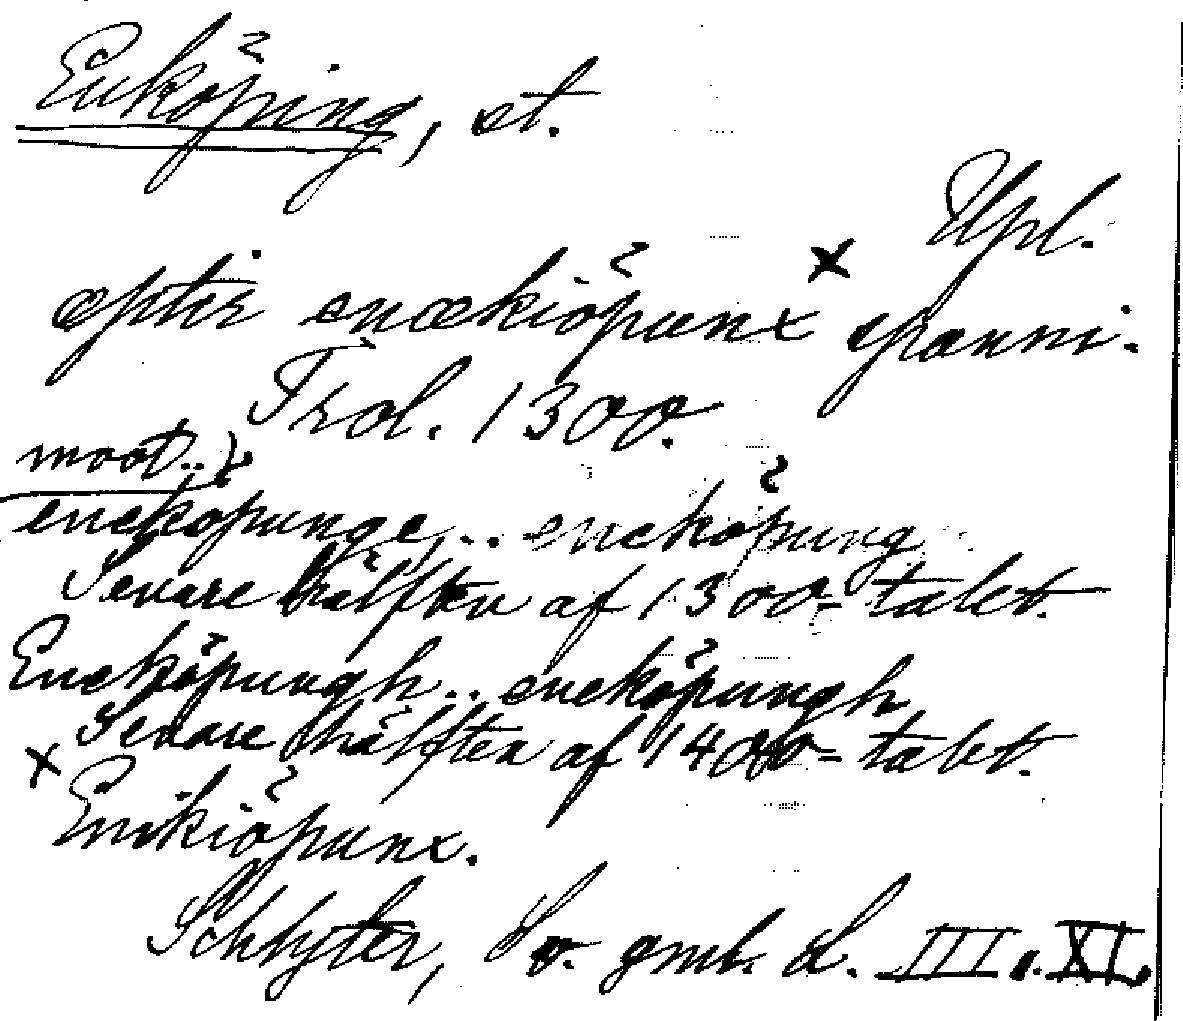 Enköping, st.
Upl.
æptir enækiöpunx × spanni.
Frål. 1300.
moot..
encköpunge,.. encköpung
Senare hälften af 1300-talet.
Eneköpungh.. eneköpungh
Senare hälften af 1400-talet.
× Enikiöpunx.
Schlyter, Sv. gmb. d. III o. XI.